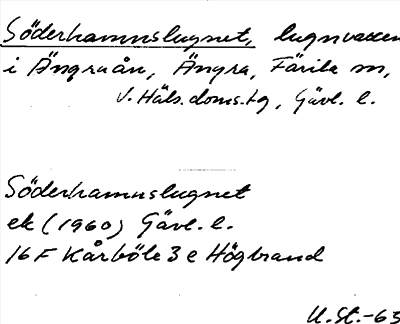 Söderhamnslugnet, lugnvatten
i Ängraån, Ängra, Färila sn,
V. Häls. doms. tg, Gävl. l.
Söderhamnslugnet
ek (1960) Gävl. l.
16 F Kårböle 3 e Högbrand
U. St.-63